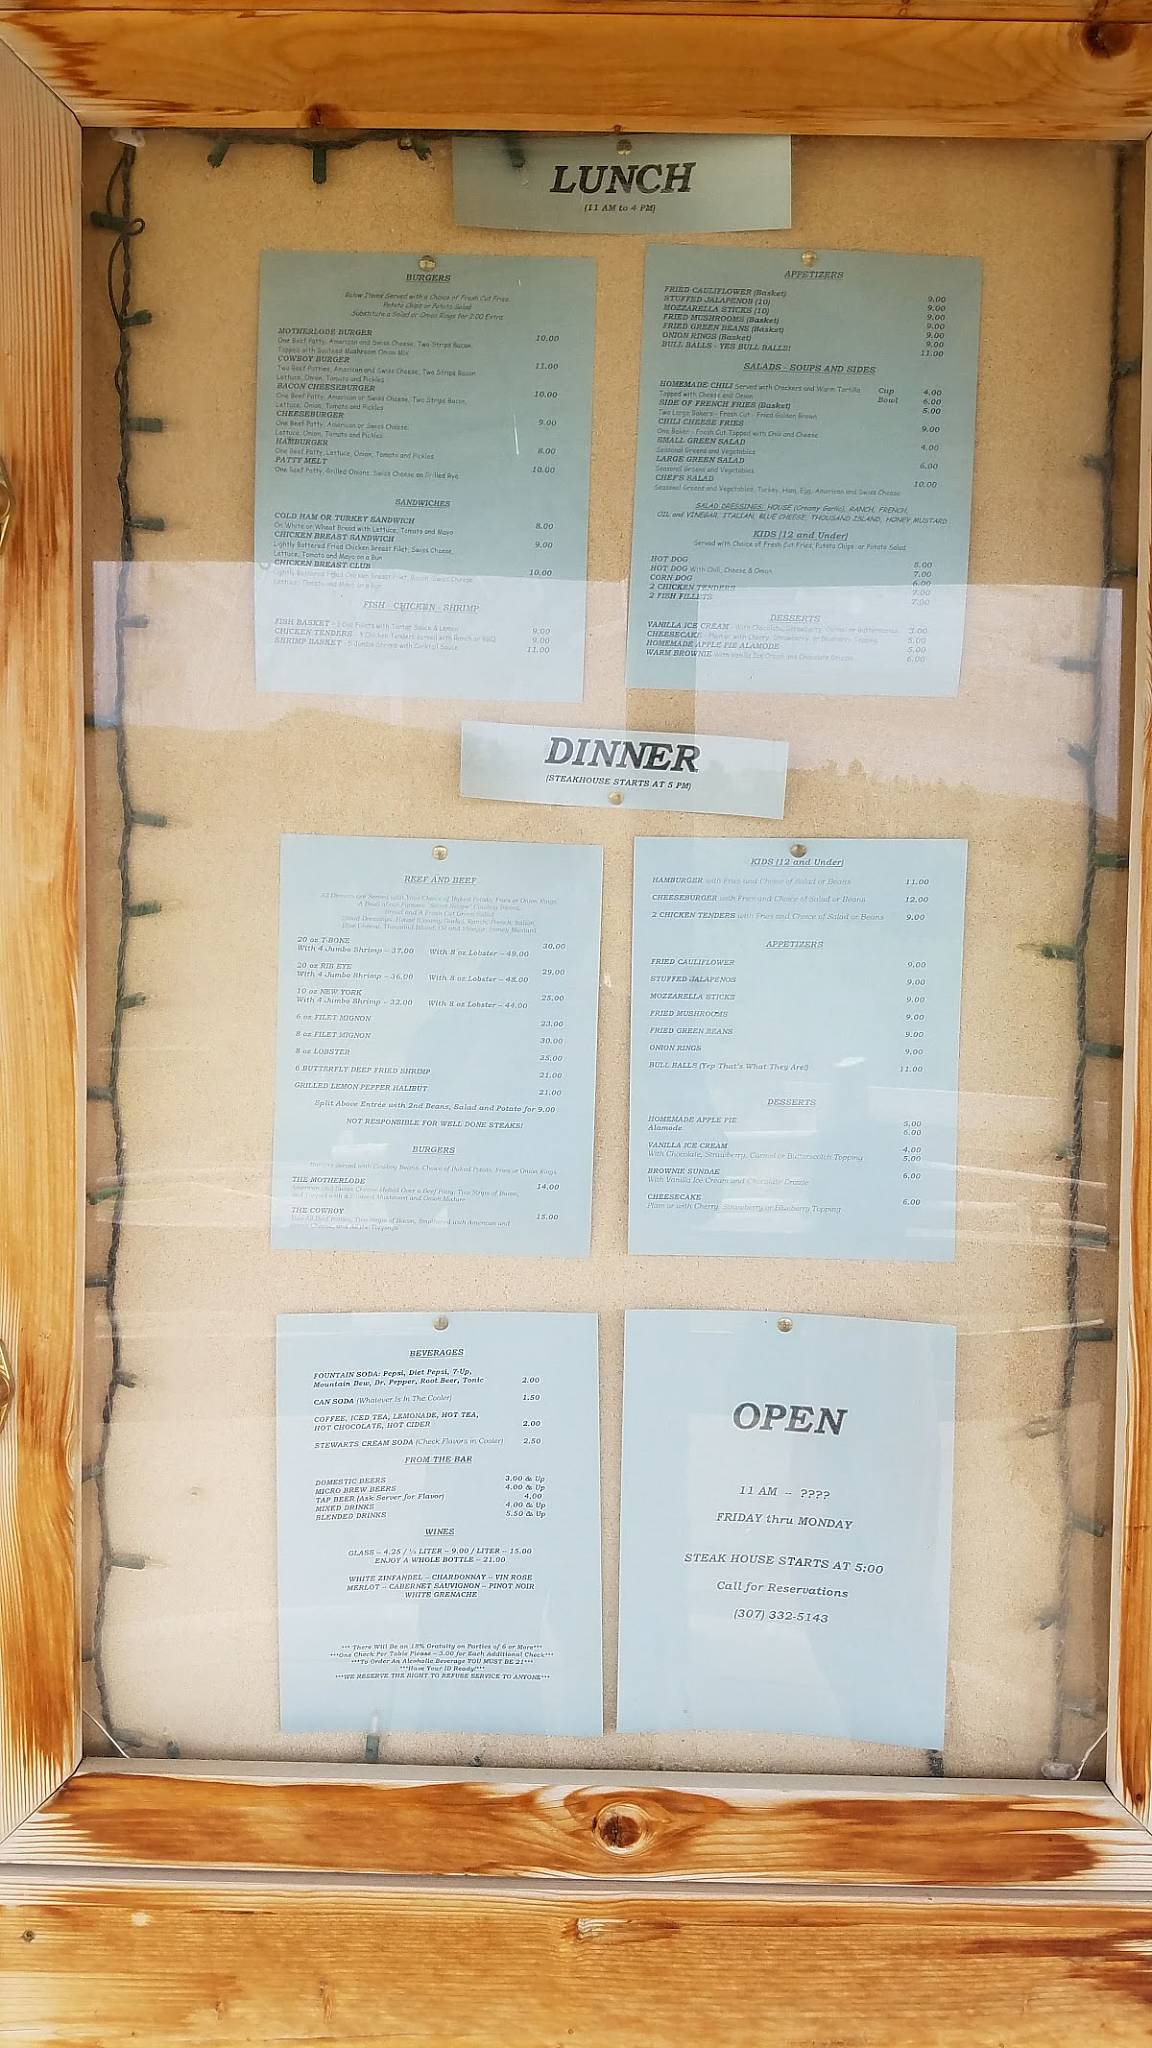 LUNCH
(11 AM to 4 PM)
BURGERS
Below Items Served with a Choice of Fresh Cut Fries,
Potato Chips or Potato Salad
Substitute a Salad or Onion Rings for 2.00 Extra
MOTHERLODE BURGER
One Beef Patty, American and Swiss Cheese, Two Strips Bacon, 10.00
Topped with Sauteed Mushroom Onion Mix
COWBOY BURGER
Two Beef Patties, American and Swiss Cheese, Two Strips Bacon 11.00
Lettuce, Onion, Tomato and Pickles
BACON CHEESEBURGER
One Beef Patty, American or Swiss Cheese, Two Strips Bacon, 10.00
Lettuce, Onion, Tomato and Pickles
CHEESEBURGER
One Beef Patty, American or Swiss Cheese, 9.00
Lettuce, Onion, Tomato and Pickles
HAMBURGER
One Beef Patty, Lettuce, Onion, Tomato and Pickles 8.00
PATTY MELT
One Beef Patty, Grilled Onions, Swiss Cheese on Grilled Rye 10.00
SANDWICHES
COLD HAM OR TURKEY SANDWICH
On White or Wheat Bread with Lettuce, Tomato and Mayo 8.00
CHICKEN BREAST SANDWICH
Lightly Battered Fried Chicken Breast Filet, Swiss Cheese, 9.00
Lettuce, Tomato and Mayo on a Bun
CHICKEN BREAST CLUB
Lightly Battered Fried Chicken Breast Filet, Bacon, Swiss Cheese, 10.00
Lettuce, Tomato and Mayo on a Bun
FISH - CHICKEN - SHRIMP
FISH BASKET - 3 Cod Fillets with Tartar Sauce & Lemon 9.00
CHICKEN TENDERS - Chicken Tenders served with Ranch or BBQ 9.00
SHRIMP BASKET - 5 Jumbo Shrimp with Cocktail Sauce 11.00
APPETIZERS
FRIED CAULIFLOWER (Basket) 9.00
STUFFED JALAPENOS (10) 9.00
MOZZARELLA STICKS (10) 9.00
FRIED MUSHROOMS (Basket) 9.00
FRIED GREEN BEANS (Basket) 9.00
ONION RINGS (Basket) 9.00
BULL BALLS - YES BULL BALLS! 11.00
SALADS - SOUPS AND SIDES
HOMEMADE CHILI Served with Crackers and Warm Tortilla Cup 4.00
Topped with Cheese and Onion Bowl 6.00
SIDE OF FRENCH FRIES (Basket) 5.00
Two Large Bakers - Fresh Cut - Fried Golden Brown
CHILI CHEESE FRIES 9.00
One Baker - Fresh Cut Topped with Chili and Cheese
SMALL GREEN SALAD 4.00
Seasonal Greens and Vegetables
LARGE GREEN SALAD 6.00
Seasonal Greens and Vegetables
CHEF'S SALAD 10.00
Seasonal Greens and Vegetables, Turkey, Ham, Egg, American and Swiss Cheese
SALAD DRESSINGS: HOUSE (Creamy Garlic), RANCH, FRENCH,
OIL and VINEGAR, ITALIAN, BLUE CHEESE, THOUSAND ISLAND, HONEY MUSTARD
KIDS (12 and Under)
Served with Choice of Fresh Cut Fries, Potato Chips or Potato Salad
HOT DOG 5.00
HOT DOG With Chili, Cheese & Onion 7.00
CORN DOG 6.00
2 CHICKEN TENDERS 7.00
2 FISH FILLETS 7.00
DESSERTS
VANILLA ICE CREAM - With Chocolate, Strawberry, Carmel or Butterscotch 3.00
CHEESECAKE - Plain or with Cherry, Strawberry or Blueberry Topping 5.00
HOMEMADE APPLE PIE ALAMODE 5.00
WARM BROWNIE With Vanilla Ice Cream and Chocolate Drizzle 6.00
DINNER
(STEAKHOUSE STARTS AT 5 PM)
REEF AND BEEF
All Dinners are Served with Your Choice of Baked Potato, Fries or Onion Rings
A Bowl of our Famous Cowboy Beans,
Bread and A Fresh Cut Green Salad
Salad Dressings: House (Creamy Garlic), Ranch, French, Italian,
Blue Cheese, Thousand Island, Oil and Vinegar, Honey Mustard
20 oz T-BONE 30.00
With 4 Jumbo Shrimp – 37.00 With 8 oz Lobster – 49.00
20 oz RIB EYE 29.00
With 4 Jumbo Shrimp – 36.00 With 8 oz Lobster – 48.00
10 oz NEW YORK 25.00
With 4 Jumbo Shrimp – 32.00 With 8 oz Lobster – 44.00
6 oz FILET MIGNON 23.00
8 oz FILET MIGNON 30.00
8 oz LOBSTER 25.00
6 BUTTERFLY DEEP FRIED SHRIMP 21.00
GRILLED LEMON PEPPER HALIBUT 21.00
Split Above Entrée with 2nd Beans, Salad and Potato for 9.00
NOT RESPONSIBLE FOR WELL DONE STEAKS!
BURGERS
Burgers Served with Cowboy Beans, Choice of Baked Potato, Fries or Onion Rings
THE MOTHERLODE 14.00
American and Swiss Cheese Melted Over a Beef Patty, Two Strips of Bacon,
and Topped with a Sauteed Mushroom and Onion Mixture
THE COWBOY 15.00
Two Beef Patties, Two Strips of Bacon, Smothered with American and
KIDS (12 and Under)
HAMBURGER with Fries and Choice of Salad or Beans 11.00
CHEESEBURGER with Fries and Choice of Salad or Beans 12.00
2 CHICKEN TENDERS with Fries and Choice of Salad or Beans 9.00
APPETIZERS
FRIED CAULIFLOWER 9.00
STUFFED JALAPENOS 9.00
MOZZARELLA STICKS 9.00
FRIED MUSHROOMS 9.00
FRIED GREEN BEANS 9.00
ONION RINGS 9.00
BULL BALLS (Yep That's What They Are!) 11.00
DESSERTS
HOMEMADE APPLE PIE 5.00
Alamode 6.00
VANILLA ICE CREAM 4.00
With Chocolate, Strawberry, Carmel or Butterscotch Topping 5.00
BROWNIE SUNDAE 6.00
With Vanilla Ice Cream and Chocolate Drizzle
CHEESECAKE 6.00
Plain or with Cherry, Strawberry or Blueberry Topping
BEVERAGES
FOUNTAIN SODA: Pepsi, Diet Pepsi, 7-Up,
Mountain Dew, Dr. Pepper, Root Beer, Tonic 2.00
CAN SODA (Whatever Is In The Cooler) 1.50
COFFEE, ICED TEA, LEMONADE, HOT TEA,
HOT CHOCOLATE, HOT CIDER 2.00
STEWARTS CREAM SODA (Check Flavors in Cooler) 2.50
FROM THE BAR
DOMESTIC BEERS 3.00 & Up
MICRO BREW BEERS 4.00 & Up
TAP BEER (Ask Server for Flavor) 4.00
MIXED DRINKS 4.00 & Up
BLENDED DRINKS 5.50 & Up
WINES
GLASS – 4.25 / ½ LITER – 9.00 / LITER – 15.00
ENJOY A WHOLE BOTTLE – 21.00
WHITE ZINFANDEL – CHARDONNAY – VIN ROSE
MERLOT – CABERNET SAUVIGNON – PINOT NOIR
WHITE GRENACHE
*** There Will Be an 18% Gratuity on Parties of 6 or More***
***One Check Per Table Please – 3.00 for Each Additional Check***
***To Order An Alcoholic Beverage YOU MUST BE 21***
***Have Your ID Ready!***
***WE RESERVE THE RIGHT TO REFUSE SERVICE TO ANYONE***
OPEN
11 AM -- ????
FRIDAY thru MONDAY
STEAK HOUSE STARTS AT 5:00
Call for Reservations
(307) 332-5143